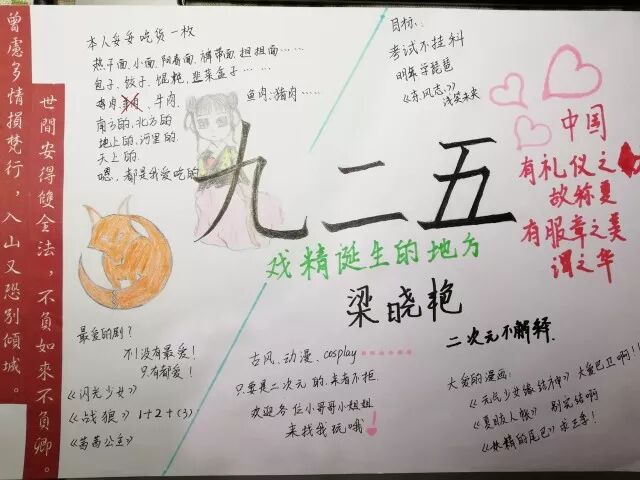 曾慮多情損梵行，入山又恐別傾城。
世間安得雙全法，不負如來不負卿。
本人妥妥吃货一枚
热干面、小面、阳春面、裤带面、担担面……
包子、饺子、馄饨、韭菜盒子……
鸡肉、羊肉、牛肉、鱼肉、猪肉……
南方的、北方的
地上的、河里的、
天上的、
嗯，都是我爱吃的
目标：
考试不挂科
明年学琵琶
《东风志》
浅笑未央
中国
有礼仪之大
故称夏
有服章之美
谓之华
九二五
戏精诞生的地方
梁晓艳
最爱的剧？
不！没有最爱！
只有都爱！
《闪光少女》
《战狼》1+2+(3)
《茜茜公主》
古风、动漫、cosplay
只要是二次元的，来者不拒。
欢迎各位小哥哥小姐姐
来找我玩哦！
二次元不解释
大爱的漫画：
《元气少女缘结神》大爱巴卫啊!!
《夏目友人帐》别完结啊
《妖精的尾巴》求三季！